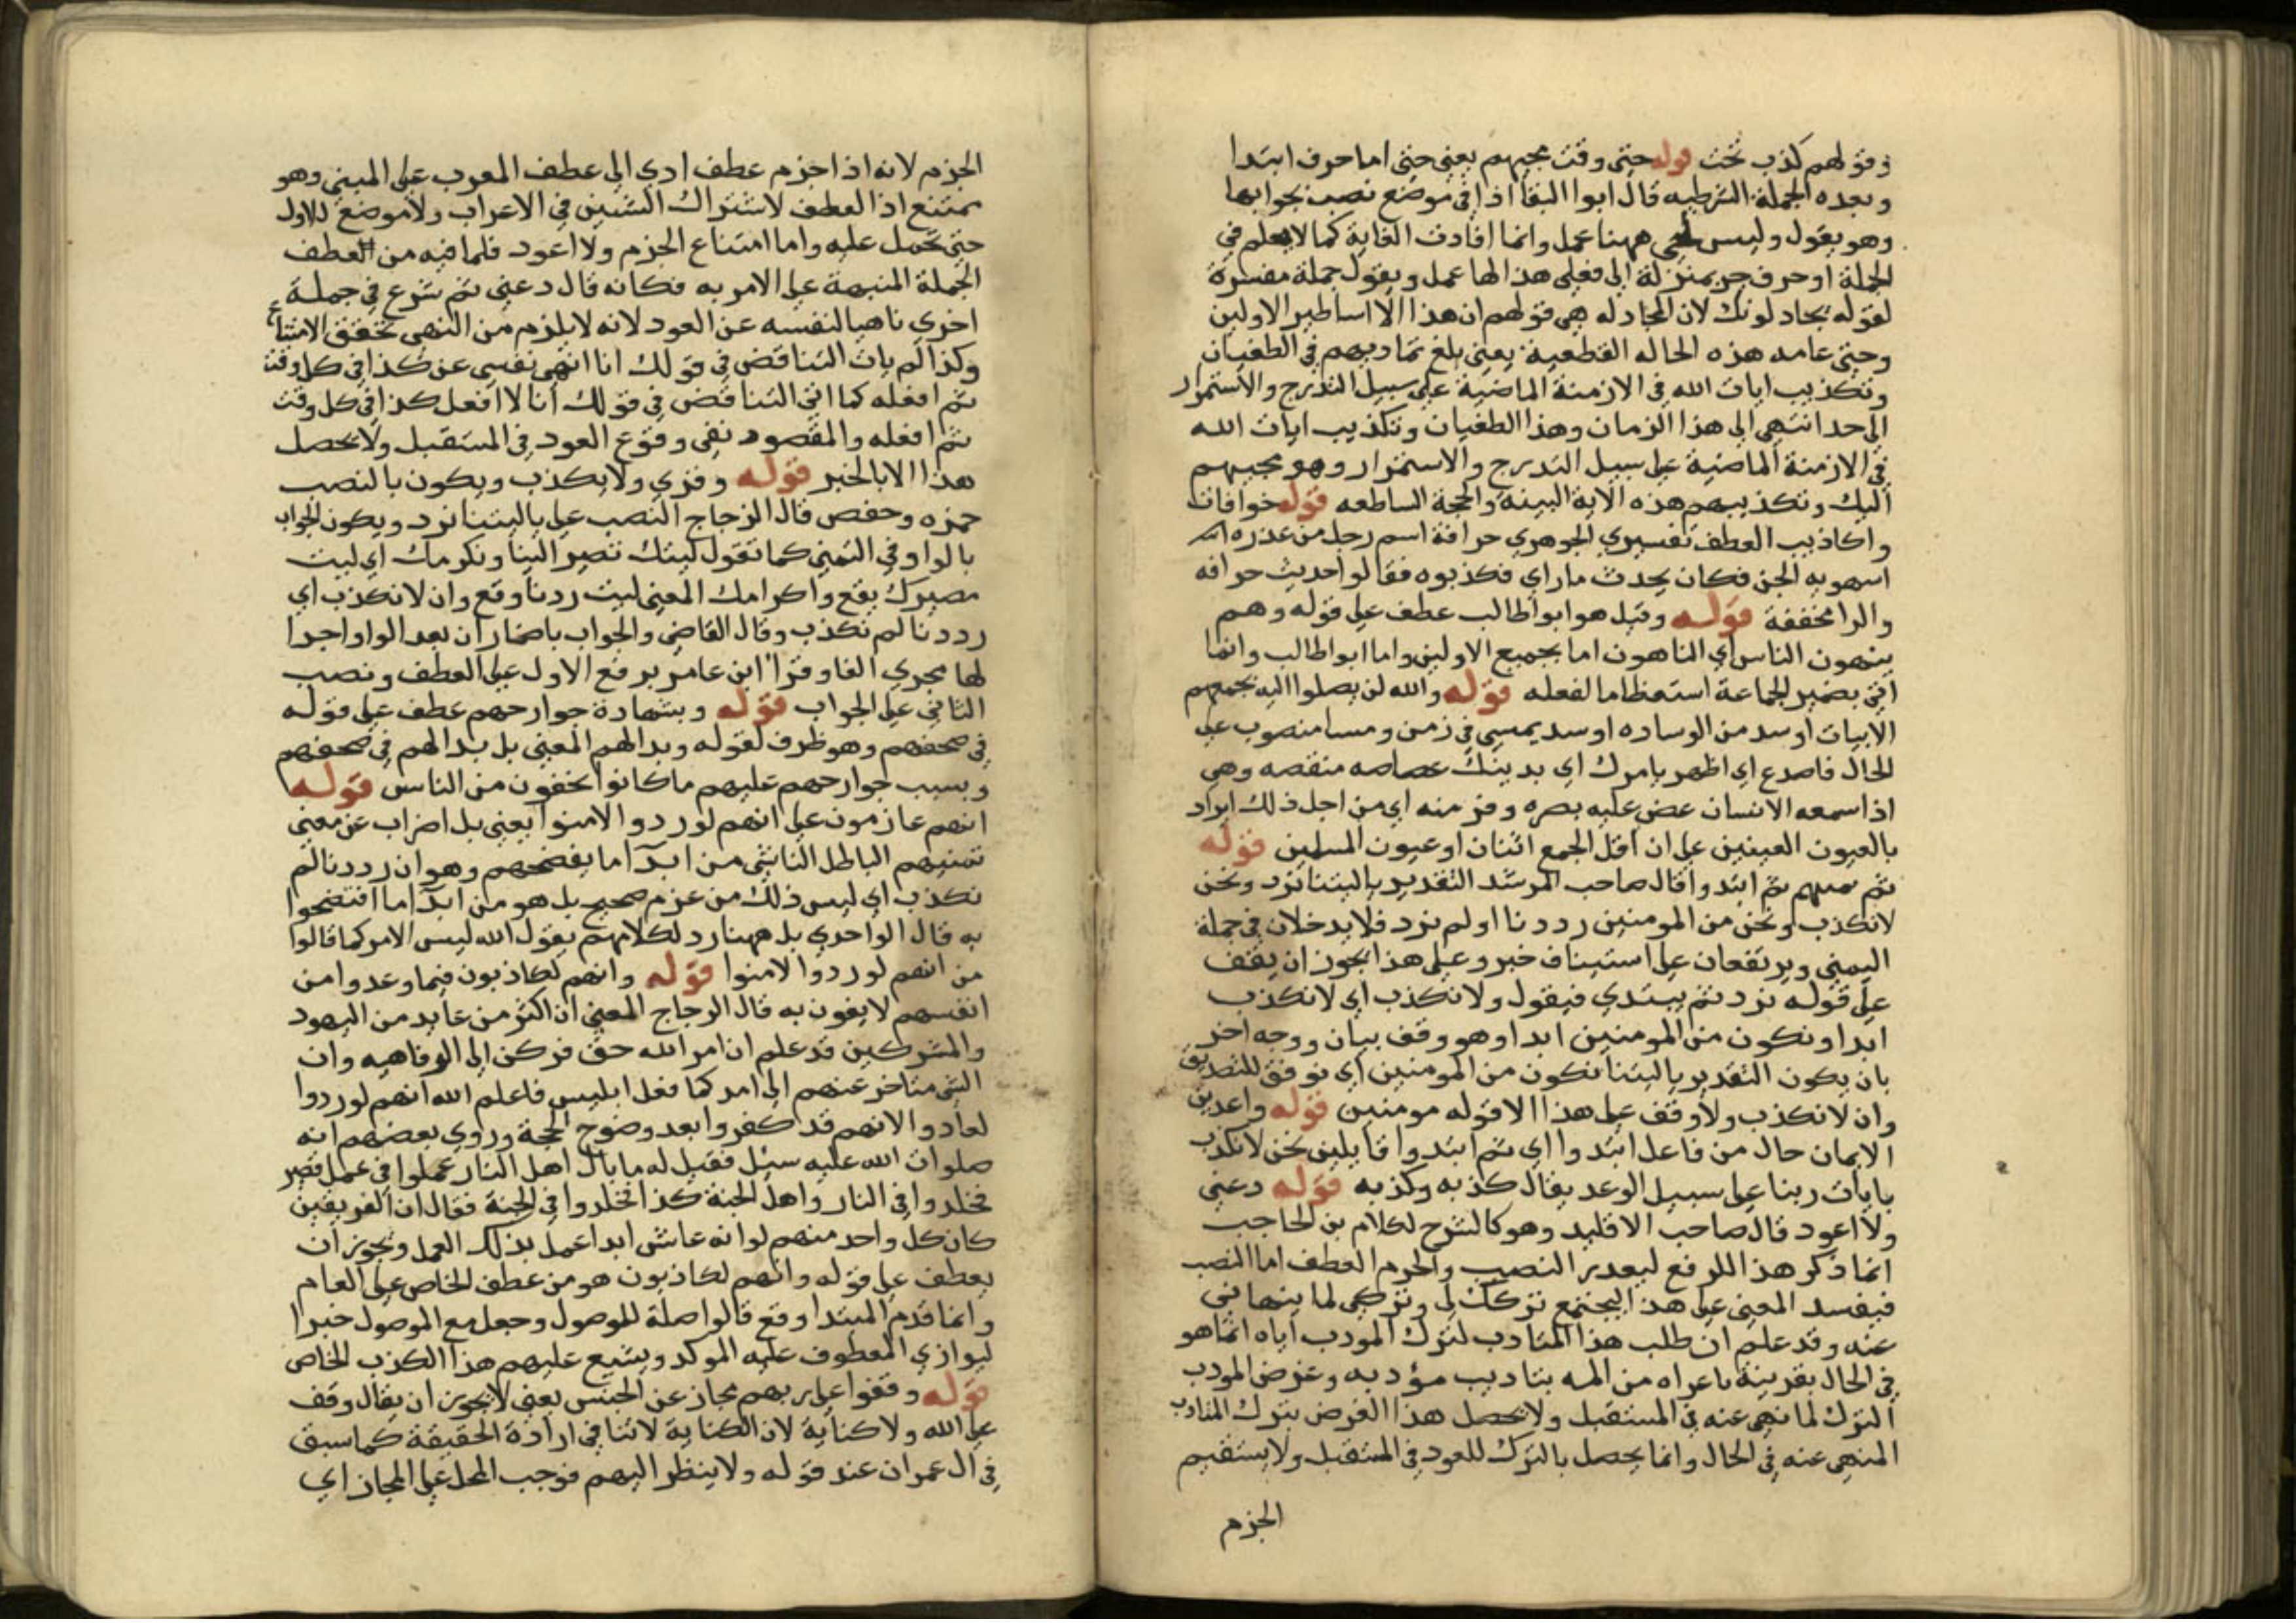 وقولهم كذب بحت قوله حتى وقت مجيهم يعني حتى اما حرف ابتدا
وبعده الجملة الشرطيه قال ابوا البقا اذا في موضع نصب بجوابها
وهو يقول وليس لحتى ههنا عمل وانما افادت الغاية كما لا يعمل في
الجملة او حرف جر بمنزلة الى فعلى هذا لها عمل ويقول جملة مفسرة
لقوله يجادلونك لان المجادله هي قولهم ان هذا الا اساطير الاولين
وحتى عامه هذه الحاله القطعية يعني بلغ تماديهم في الطغيان
وتكذيب ايات الله في الازمنة الماضية على سبيل التدرج والاستمرار
الى حد انتهى الى هذا الزمان وهذا الطغيان وتكذيب ايات الله
في الازمنة الماضية على سبيل التدرج والاستمرار وهو مجيهم
اليك وتكذيبهم هذه الاية البينة والحجة الساطعه قوله خوافات
واكاذيب العطف تفسيري الجوهري حرافة اسم رجل من عذره
اسهوبه الجن فكان يحدث ما راي فكذبوه فقالوا حديث حرافه
والرا مخففة قوله وقيل هو ابوا طالب عطف على قوله وهم
ينهون الناس اي الناهون اما بجميع الاولين واما ابوا طالب وانما
اتى بضمير الجماعة استعظاما لفعله قوله والله لن يصلوا اليه بجمعهم
الابيات اوسد من الوساده اوسد يمسي في زمن ومسا منصوب على
الحال فاصدع اي اظهر بامرك اي بدينك عصاصه منقصه وهي
اذا سمعه الانسان غض عليه بصره وفر منه اي من اجل ذلك ايراد
بالعيون العينين على ان اقل الجمع اثنان او عيون المسلمين قوله
ثم ابتدوا قال صاحب المرشد التقدير ياليتنا نرد ونحن
لا نكذب ونحن من المومنين رددنا او لم نرد فلا يدخلان في جملة
اليمني ويرتفعان على استيناف خبر وعلى هذا يجوز ان يقف
على قوله نرد ثم يبتدي فيقول ولا نكذب اي لا نكذب
ابدا ونكون من المومنين ابدا وهو وقف بيان ووجه اخر
بان يكون التقدير ياليتنا نكون من المومنين اي نوفق للتصديق
وان لا نكذب ولا وقف على هذا الا قوله مومنين قوله واعدين
الايمان حال من فاعل ابتدوا اي ثم ابتدوا قايلين نحن لا نكذب
بايات ربنا على سبيل الوعد يقال كذبه وكذبه قوله دعني
ولا اعود قال صاحب الاقليد وهو كالشرح لكلام بن الحاجب
انما ذكر هذا للرفع ليعدر النصب والجزم العطف اما النصب
فيفسد المعنى على هذا ليجتمع تركك لي وتركي لما ينهاني
عنه وقد علم ان طلب هذا المتادب لترك المودب اياه انما هو
في الحال بقرينة ما عراه من المه بتاديب مؤدبه وغرض المودب
الترك لما نهى عنه في المستقبل ولا يحصل هذا الغرض بترك المتادب
المنهى عنه في الحال وانما يحصل بالترك للعود في المستقبل ولا يستقيم
الجزم
الجزم لانه اذا جزم عطف ادي الى عطف المعرب على المبني وهو
يمتنع اذا العطف لاشتراك الشيئين في الاعراب ولا موضع للاول
حتى تحمل عليه واما امتناع الجزم ولا اعود فلما فيه من العطف
الجملة المنبهة على الامر به فكانه قال دعني ثم شرع في جملة
اخري ناهيا لنفسه عن العود لانه لا يلزم من النهى تحقق الامتناع
وكذا لم يات التناقض في قولك انا انهى نفسي عن كذا في كل وقت
ثم افعله كما اتى التناقض في قولك انا لا افعل كذا في كل وقت
ثم افعله والمقصود نفى وقوع العود في المستقبل ولا يحصل
هذا الا بالخبر قوله وقري ولا يكذب ويكون بالنصب
حمزه وحفص قال الزجاج النصب على ياليتنا نرد ويكون الجواب
بالواو في التمني كما تقول ليتك تصير الينا ونكرمك اي ليت
مصيرك يقع واكرامك المعنى ليت ردنا وقع وان لا نكذب اي
رددنا لم نكذب وقال القاضي والجواب باضمار ان بعد الواو اجرا
لها مجري الفا وقرا ابن عامر برفع الاول على العطف ونصب
الثاني على الجواب قوله وبشهادة جوارحهم عطف على قوله
في صحفهم وهو ظرف لقوله وبدا لهم المعنى بل بدا لهم في صحفهم
وبسبب جوارحهم عليهم ما كانوا يخفون من الناس قوله
انهم عازمون على انهم لو ردوا الامنوا يعني بل اضراب عن معنى
تمنيهم الباطل الناشي من ابدآ ما يفضحهم وهو ان رددنا لم
نكذب اي ليس ذلك من عزم صحيح بل هو من ابدآ ما افتضحوا
به قال الواحدي بل ههنا رد لكلامهم يقول الله ليس الامر كما قالوا
من انهم لو ردوا لامنوا قوله وانهم لكاذبون فيما وعدوا من
انفسهم لا يفون به قال الزجاج المعنى ان اكثر من عاند من اليهود
والمشركين قد علم ان امر الله حق فركن الى الرفاهيه وان
الشي متاخر عنهم الى امد كما فعل ابليس فاعلم الله انهم لو ردوا
لعادوا لانهم قد كفروا بعد وضوح الحجة وروي بعضهم انه
صلوات الله عليه سيل فقيل له ما بال اهل النار عملوا في عمل قصير
فخلدوا في النار واهل الجنة كذا فخلدوا في الجنة فقال ان الفريقين
كان كل واحد منهم لو انه عاش ابدا عمل بذلك العمل ويجوز ان
يعطف على قوله وانهم لكاذبون هو من عطف الخاص على العام
وانما قدم المبتدا وقع قالوا صلة للموصول وجعل مع الموصول خبرا
ليوازي المعطوف عليه الموكد ويشيع عليهم هذا الكذب الخاص
قوله وقفوا على ربهم مجاز عن الحبس يعني لا يجوز ان يقال وقف
على الله ولا كناية لان الكناية لا تنافي ارادة الحقيقة كما سبق
في ال عمران عند قوله ولا ينظر اليهم فوجب الحمل على المجاز اي